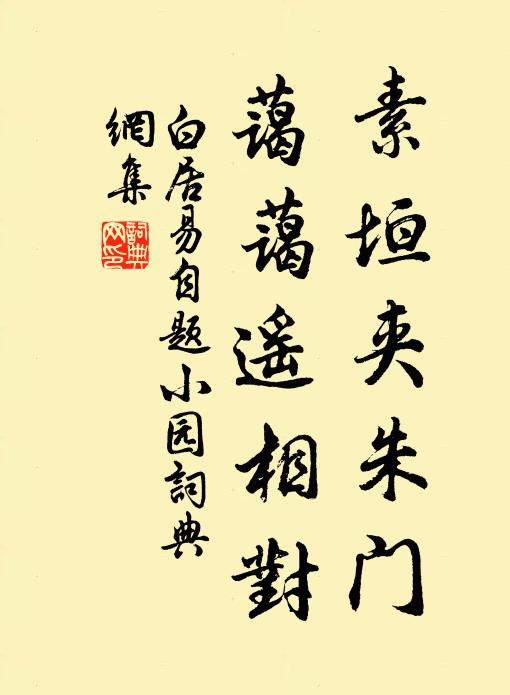 素垣夹朱门
蔼蔼遥相對
白居易自题小园詞典
網集
詞典网印